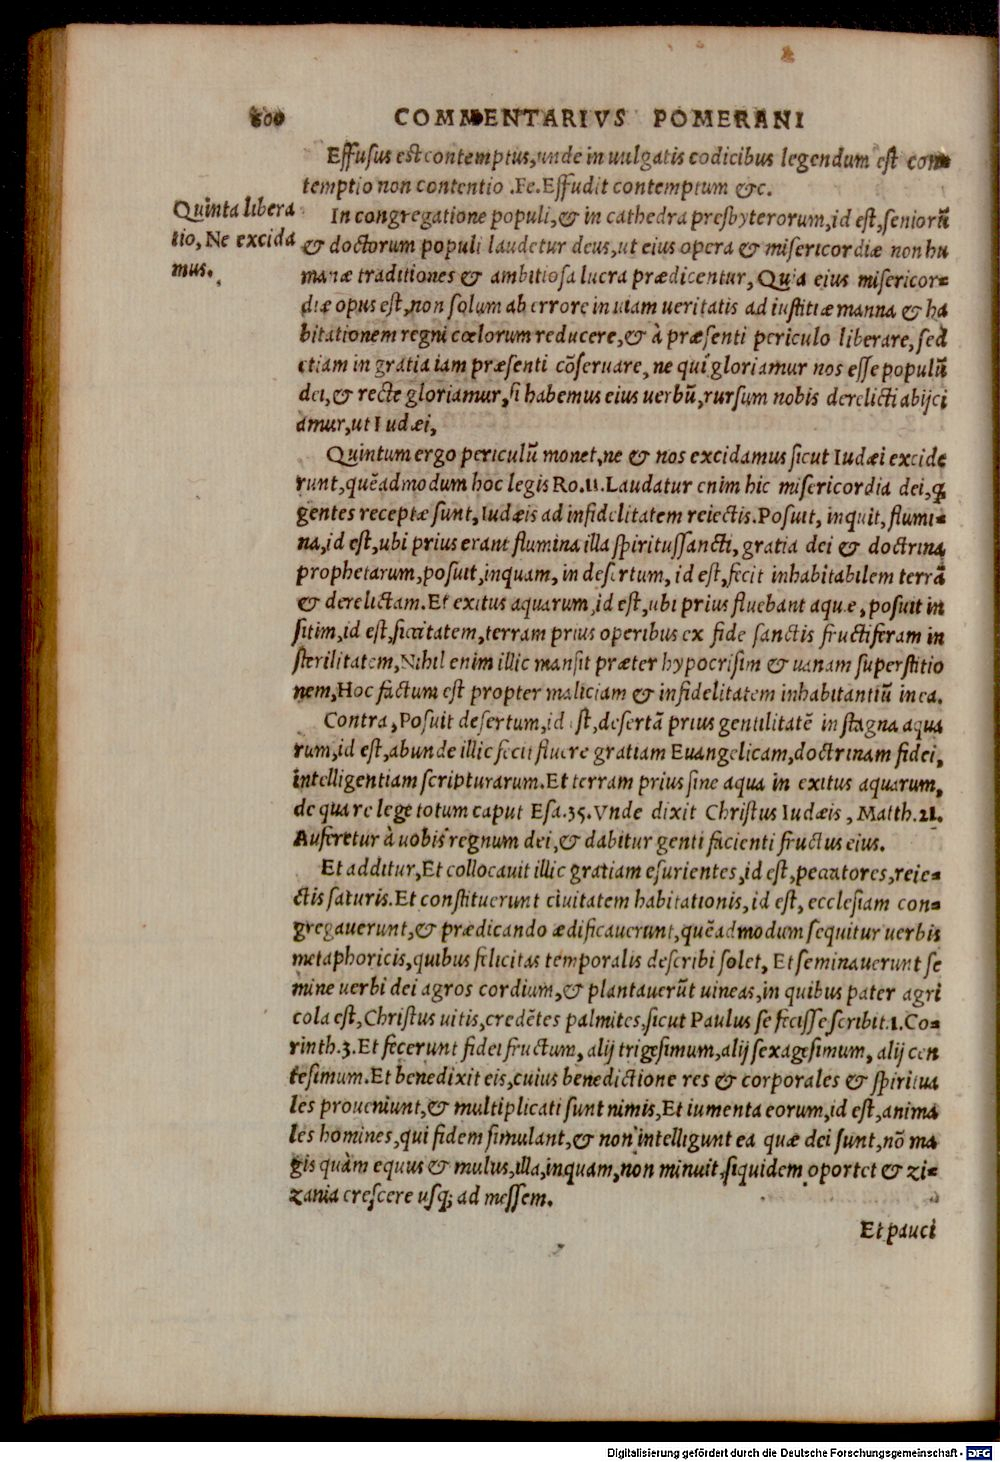 600 COMMENTARIVS POMERANI
Effusus est contemptus, unde in uulgatis codicibus legendum est con-
temptio non contentio .Fe. Effudit contemptum &c.
Quinta libera
tio, Ne excida
mus.
In congregatione populi, & in cathedra presbyterorum, id est, seniorũ
& doctorum populi laudetur deus, ut eius opera & misericordiæ non hu
manæ traditiones & ambitiosa lucra prædicentur, Quia eius misericor-
diæ opus est, non solum ab errore in uiam ueritatis ad iustitiæ manna & ha
bitationem regni cœlorum reducere, & à præsenti periculo liberare, sed
etiam in gratia iam præsenti cõseruare, ne qui gloriamur nos esse populũ
dei, & recte gloriamur, si habemus eius uerbũ, rursum nobis derelicti abijci
amur, ut Iudæi,
Quintum ergo periculũ monet, ne & nos excidamus sicut Iudæi excide
runt, quẽadmodum hoc legis Ro.11. Laudatur enim hic misericordia dei, ꝗ
gentes receptæ sunt, Iudæis ad infidelitatem reiectis. Posuit, inquit, flumi-
na, id est, ubi prius erant flumina illa spiritussancti, gratia dei & doctrina
prophetarum, posuit, inquam, in desertum, id est, fecit inhabitabilem terrã
& derelictam. Et exitus aquarum, id est, ubi prius fluebant aquæ, posuit in
sitim, id est, siccitatem, terram prius operibus ex fide sanctis fructiferam in
sterilitatem, Nihil enim illic mansit præter hypocrisim & uanam superstitio
nem, Hoc factum est propter maliciam & infidelitatem inhabitantiũ in ea.
Contra, Posuit desertum, id est, desertã prius gentilitatẽ in stagna aqua
rum, id est, abunde illic fecit fluere gratiam Euangelicam, doctrinam fidei,
intelligentiam scripturarum. Et terram prius sine aqua in exitus aquarum,
de qua re lege totum caput Esa.35. Vnde dixit Christus Iudæis, Matth.21.
Auferetur à uobis regnum dei, & dabitur genti facienti fructus eius.
Et additur, Et collocauit illic gratiam esurientes, id est, peccatores, reie-
ctis saturis. Et constituerunt ciuitatem habitationis, id est, ecclesiam con-
gregauerunt, & prædicando ædificauerunt, quẽadmodum sequitur uerbis
metaphoricis, quibus felicitas temporalis describi solet, Et seminauerunt se
mine uerbi dei agros cordium, & plantauerũt uineas, in quibus pater agri
cola est, Christus uitis, credẽtes palmites, sicut Paulus se fecisse scribit.1.Co-
rinth.3. Et fecerunt fidei fructum, alij trigesimum, alij sexagesimum, alij cen
tesimum. Et benedixit eis, cuius benedictione res & corporales & spiritua
les proueniunt, & multiplicati sunt nimis, Et iumenta eorum, id est, anima
les homines, qui fidem simulant, & non intelligunt ea quæ dei sunt, nõ ma
gis quàm equus & mulus, illa, inquam, non minuit, siquidem oportet & zi-
zania crescere usq; ad messem.
Et pauci
Digitalisierung gefördert durch die Deutsche Forschungsgemeinschaft - DFG